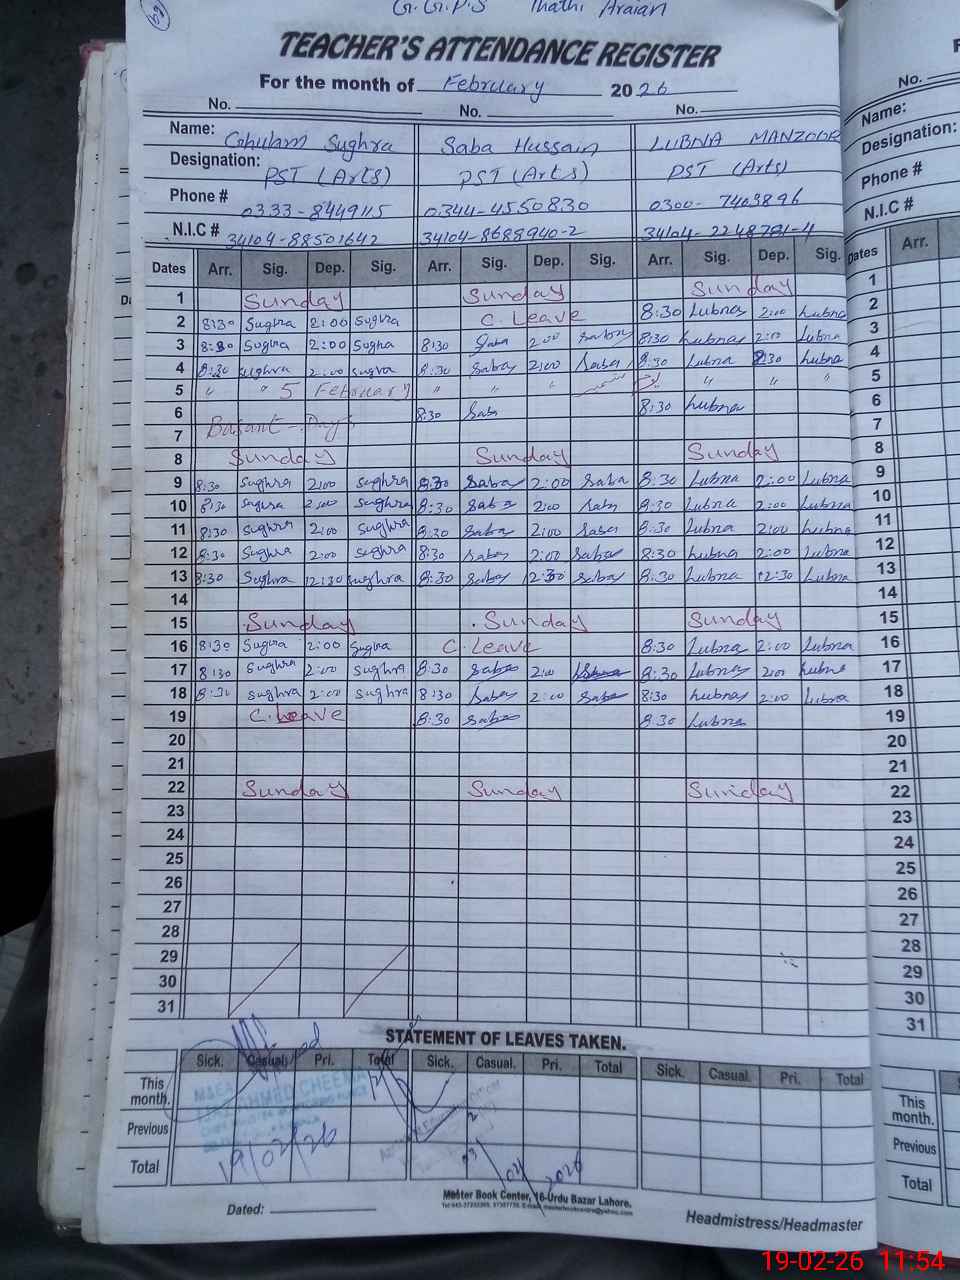 G.G.P.S Thathi Araian
TEACHER'S ATTENDANCE REGISTER
For the month of February 2026
No. No. No.
Name: Ghulam Sughra Saba Hussain LUBNA MANZOOR
Designation: PST (Arts) PST (Arts) PST (Arts)
Phone # 0333-8449115 0344-4550830 0300-7403896
N.I.C # 34104-88501642 34104-8688940-2 34104-2248781-4
Dates Arr. Sig. Dep. Sig. Arr. Sig. Dep. Sig. Arr. Sig. Dep. Sig.
1 Sunday Sunday Sunday
2 8:30 Sughra 2:00 Sughra C. Leave 8:30 Lubna 2:00 Lubna
3 8:30 Sughra 2:00 Sughra 8:30 Saba 2:00 Saba 8:30 Lubna 2:00 Lubna
4 8:30 Sughra 2:00 Sughra 8:30 Saba 2:00 Saba 8:30 Lubna 2:30 Lubna
5 " " 5 February " " " " " "
6 8:30 Saba 8:30 Lubna
Basant Days
7
8 Sunday Sunday Sunday
9 8:30 Sughra 2:00 Sughra 8:30 Saba 2:00 Saba 8:30 Lubna 2:00 Lubna
10 8:30 Sughra 2:00 Sughra 8:30 Saba 2:00 Saba 8:30 Lubna 2:00 Lubna
11 8:30 Sughra 2:00 Sughra 8:30 Saba 2:00 Saba 8:30 Lubna 2:00 Lubna
12 8:30 Sughra 2:00 Sughra 8:30 Saba 2:00 Saba 8:30 Lubna 2:00 Lubna
13 8:30 Sughra 12:30 Sughra 8:30 Saba 2:30 Saba 8:30 Lubna 12:30 Lubna
14
15 Sunday Sunday Sunday
16 8:30 Sughra 2:00 Sughra C. Leave 8:30 Lubna 2:00 Lubna
17 8:30 Sughra 2:00 Sughra 8:30 Saba 2:00 8:30 Lubna 2:00 Lubna
18 8:30 Sughra 2:00 Sughra 8:30 Saba 2:00 Saba 8:30 Lubna 2:00 Lubna
19 C. Leave 8:30 Saba 8:30 Lubna
20
21
22 Sunday Sunday Sunday
23
24
25
26
27
28
29
30
31
STATEMENT OF LEAVES TAKEN.
Sick. Casual. Pri. Total Sick. Casual. Pri. Total Sick. Casual. Pri. Total
This month.
Previous
Total
M&EA
AHMED CHEEMA
19/02/26
03/02/2026
Master Book Center, 16-Urdu Bazar Lahore.
Dated:
Headmistress/Headmaster
No.
Name:
Designation:
Phone #
N.I.C #
Dates Arr.
1
2
3
4
5
6
7
8
9
10
11
12
13
14
15
16
17
18
19
20
21
22
23
24
25
26
27
28
29
30
31
This month.
Previous
Total
19-02-26 11:54